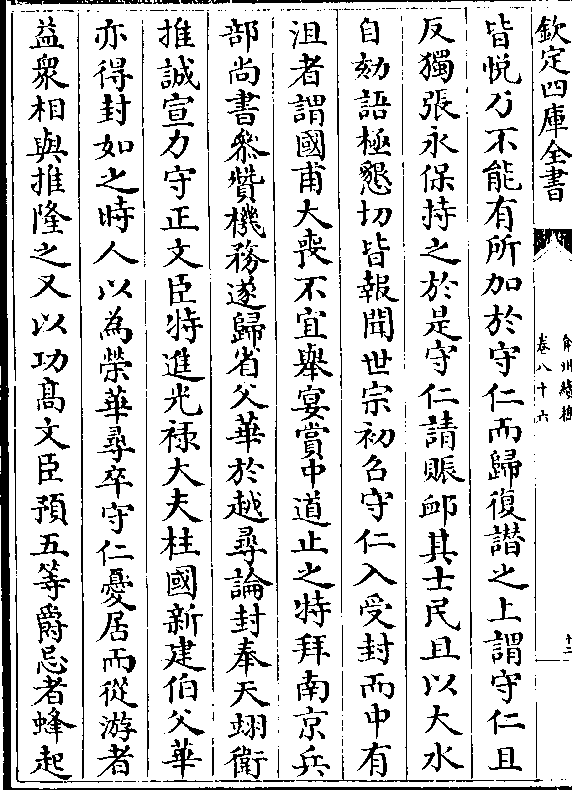 欽定四庫全書
弇州續稿
卷八十六
十二
皆悅乃不能有所加於守仁而歸復譖之上謂守仁且
反獨張永保持之於是守仁請賑卹其士民且以大水
自劾語極懇切皆報聞世宗初召守仁入受封而中有
沮者謂國甫大喪不宜舉宴賞中道止之特拜南京兵
部尚書叅贊機務遂歸省父華於越尋論封奉天翊衛
推誠宣力守正文臣特進光祿大夫柱國新建伯父華
亦得封如之時人以為榮華尋卒守仁憂居而從游者
益衆相與推隆之又以功髙文臣預五等爵忌者蜂起